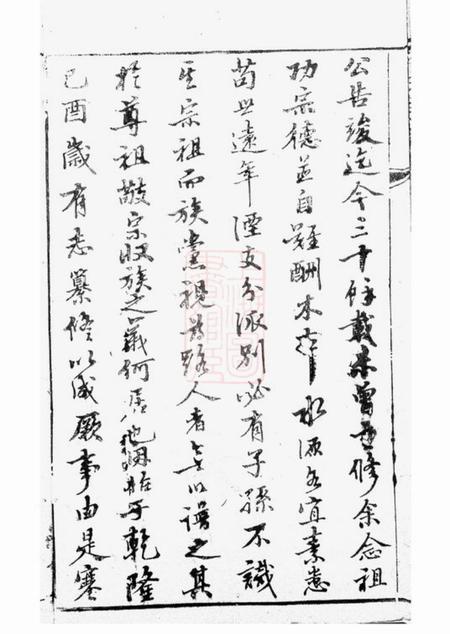 公告竣迄今三十餘載未曾重修余念祖
功宗德並自難酬木本水源各宜素悉
苟世遠年湮支分派別必有子孫不識
其宗祖而族黨視為路人者無以謂之其
於尊祖敬宗收族之義何居也用始于乾隆
己酉歲有志纂修以成厥事由是蹇